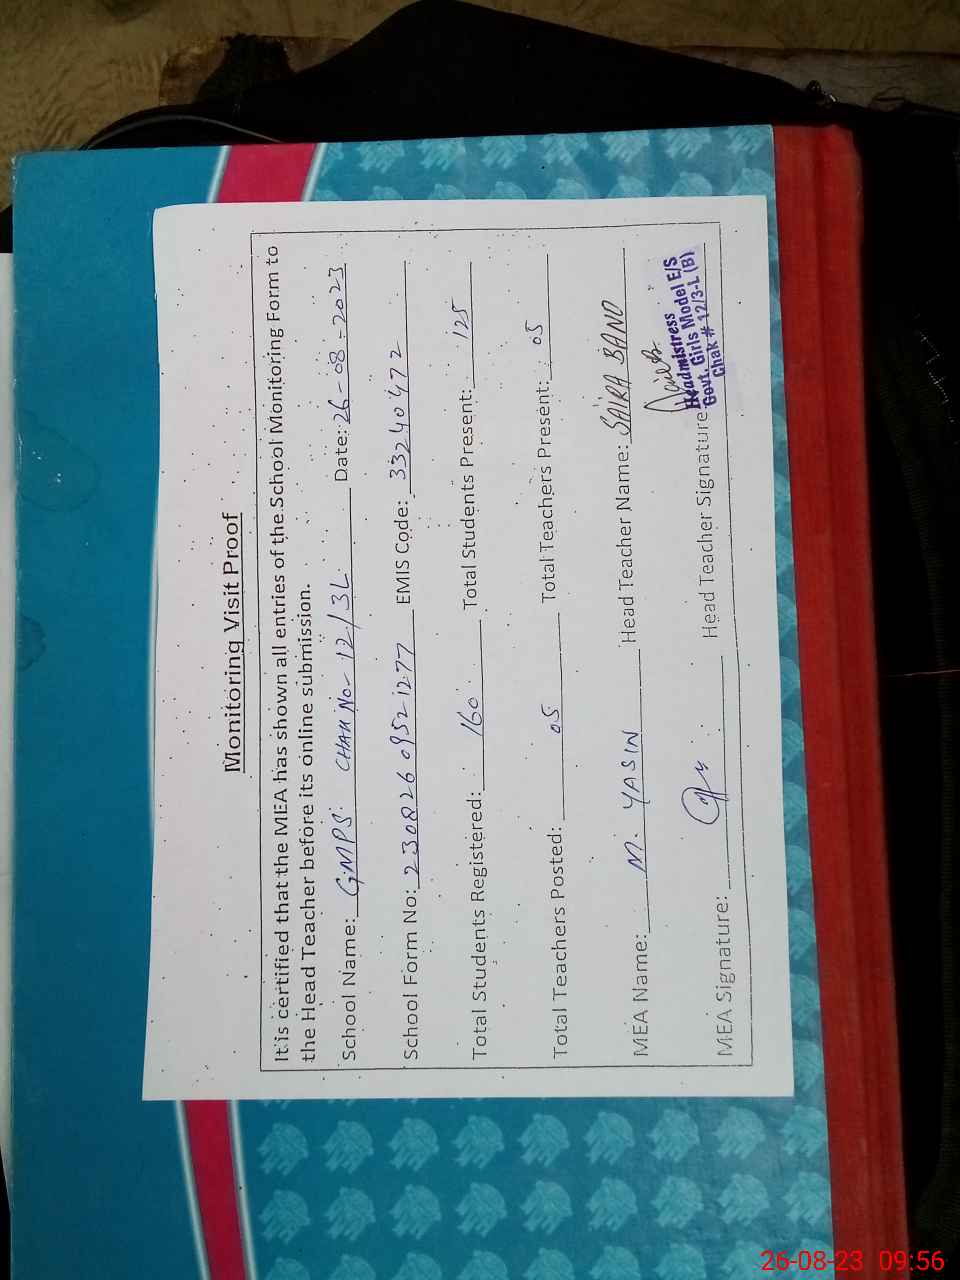 Monitoring Visit Proof
It is certified that the MEA has shown all entries of the School Monitoring Form to
the Head Teacher before its online submission.
School Name: GMPS CHAK No- 12/3L Date: 26-08-2023
School Form No: 23082609521277 EMIS Code: 33240472
Total Students Registered: 160 Total Students Present: 125
Total Teachers Posted: 05 Total Teachers Present: 05
MEA Name: M. YASIN Head Teacher Name: SAIRA BANO
MEA Signature: Head Teacher Signature
Headmistress
Govt. Girls Model E/S
Chak # 12/3-L (B)
26-08-23 09:56